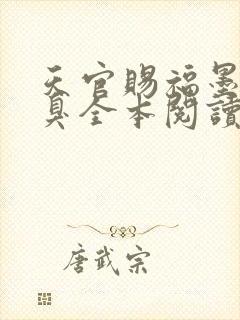 天官賜福墨
真全本閱讀
唐武宗